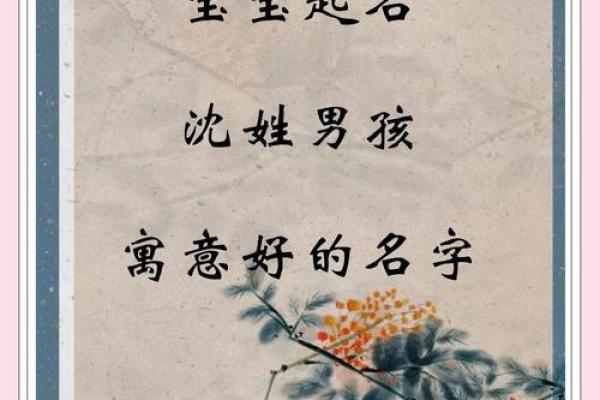 宝宝起名
沈姓男孩
寓意好的名字